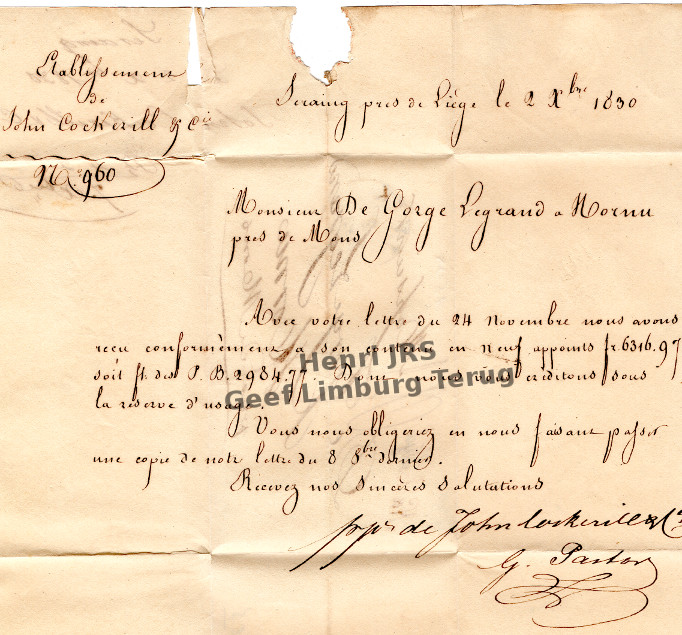 Etablissement
de
John Cockerill & Cie
No. 960
Seraing pres de Liége le 2 Xbre 1830
Monsieur De Gorge Legrand a Hornu
pres de Mons
Avec votre lettre du 24 Novembre nous avons
recu conformément a son contenu en neuf appoints fr. 6316.97
soit fl. des P. B. 2984.77. Dont nous vous créditons sous
la reserve d'usage.
Vous nous obligeriez en nous faisant passer
une copie de notre lettre du 8 8bre dernier.
Recevez nos sincères salutations
ppn de John Cockerill & Cie
G. Pastor
Henri JNS
Geef Limburg Terug